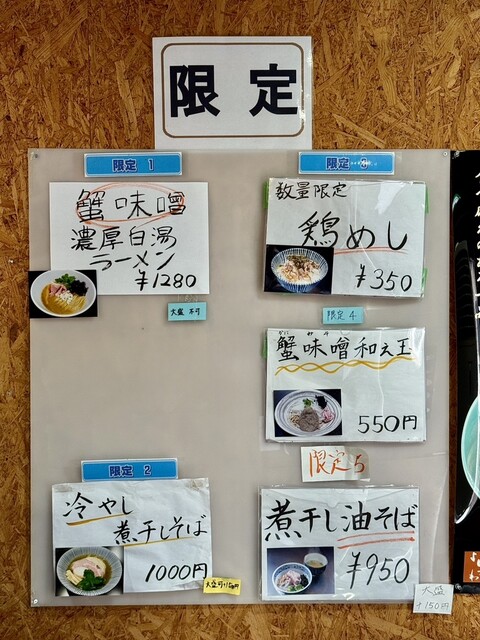 限定
限定 1
蟹味噌
濃厚白湯
ラーメン
¥1280
大盛 不可
限定 2
冷やし
煮干しそば
1000円
大盛可+150円
限定
数量限定
鶏めし
¥350
限定 4
かに み そ
蟹味噌和え玉
550円
限定5
煮干し油そば
¥950
大盛
+150円